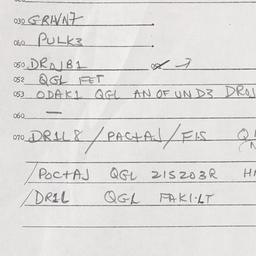 030 GRHVN7
040 PULK3
050 DRAJB1
052 QGL FET
053 ODAK1 QGL AN OF UND3 DROJ
060 —
070 DR1L8 / PACTAJ / FIS
/ POCTAJ QGL 21S203R
/ DR1L QGL FAKI·LT